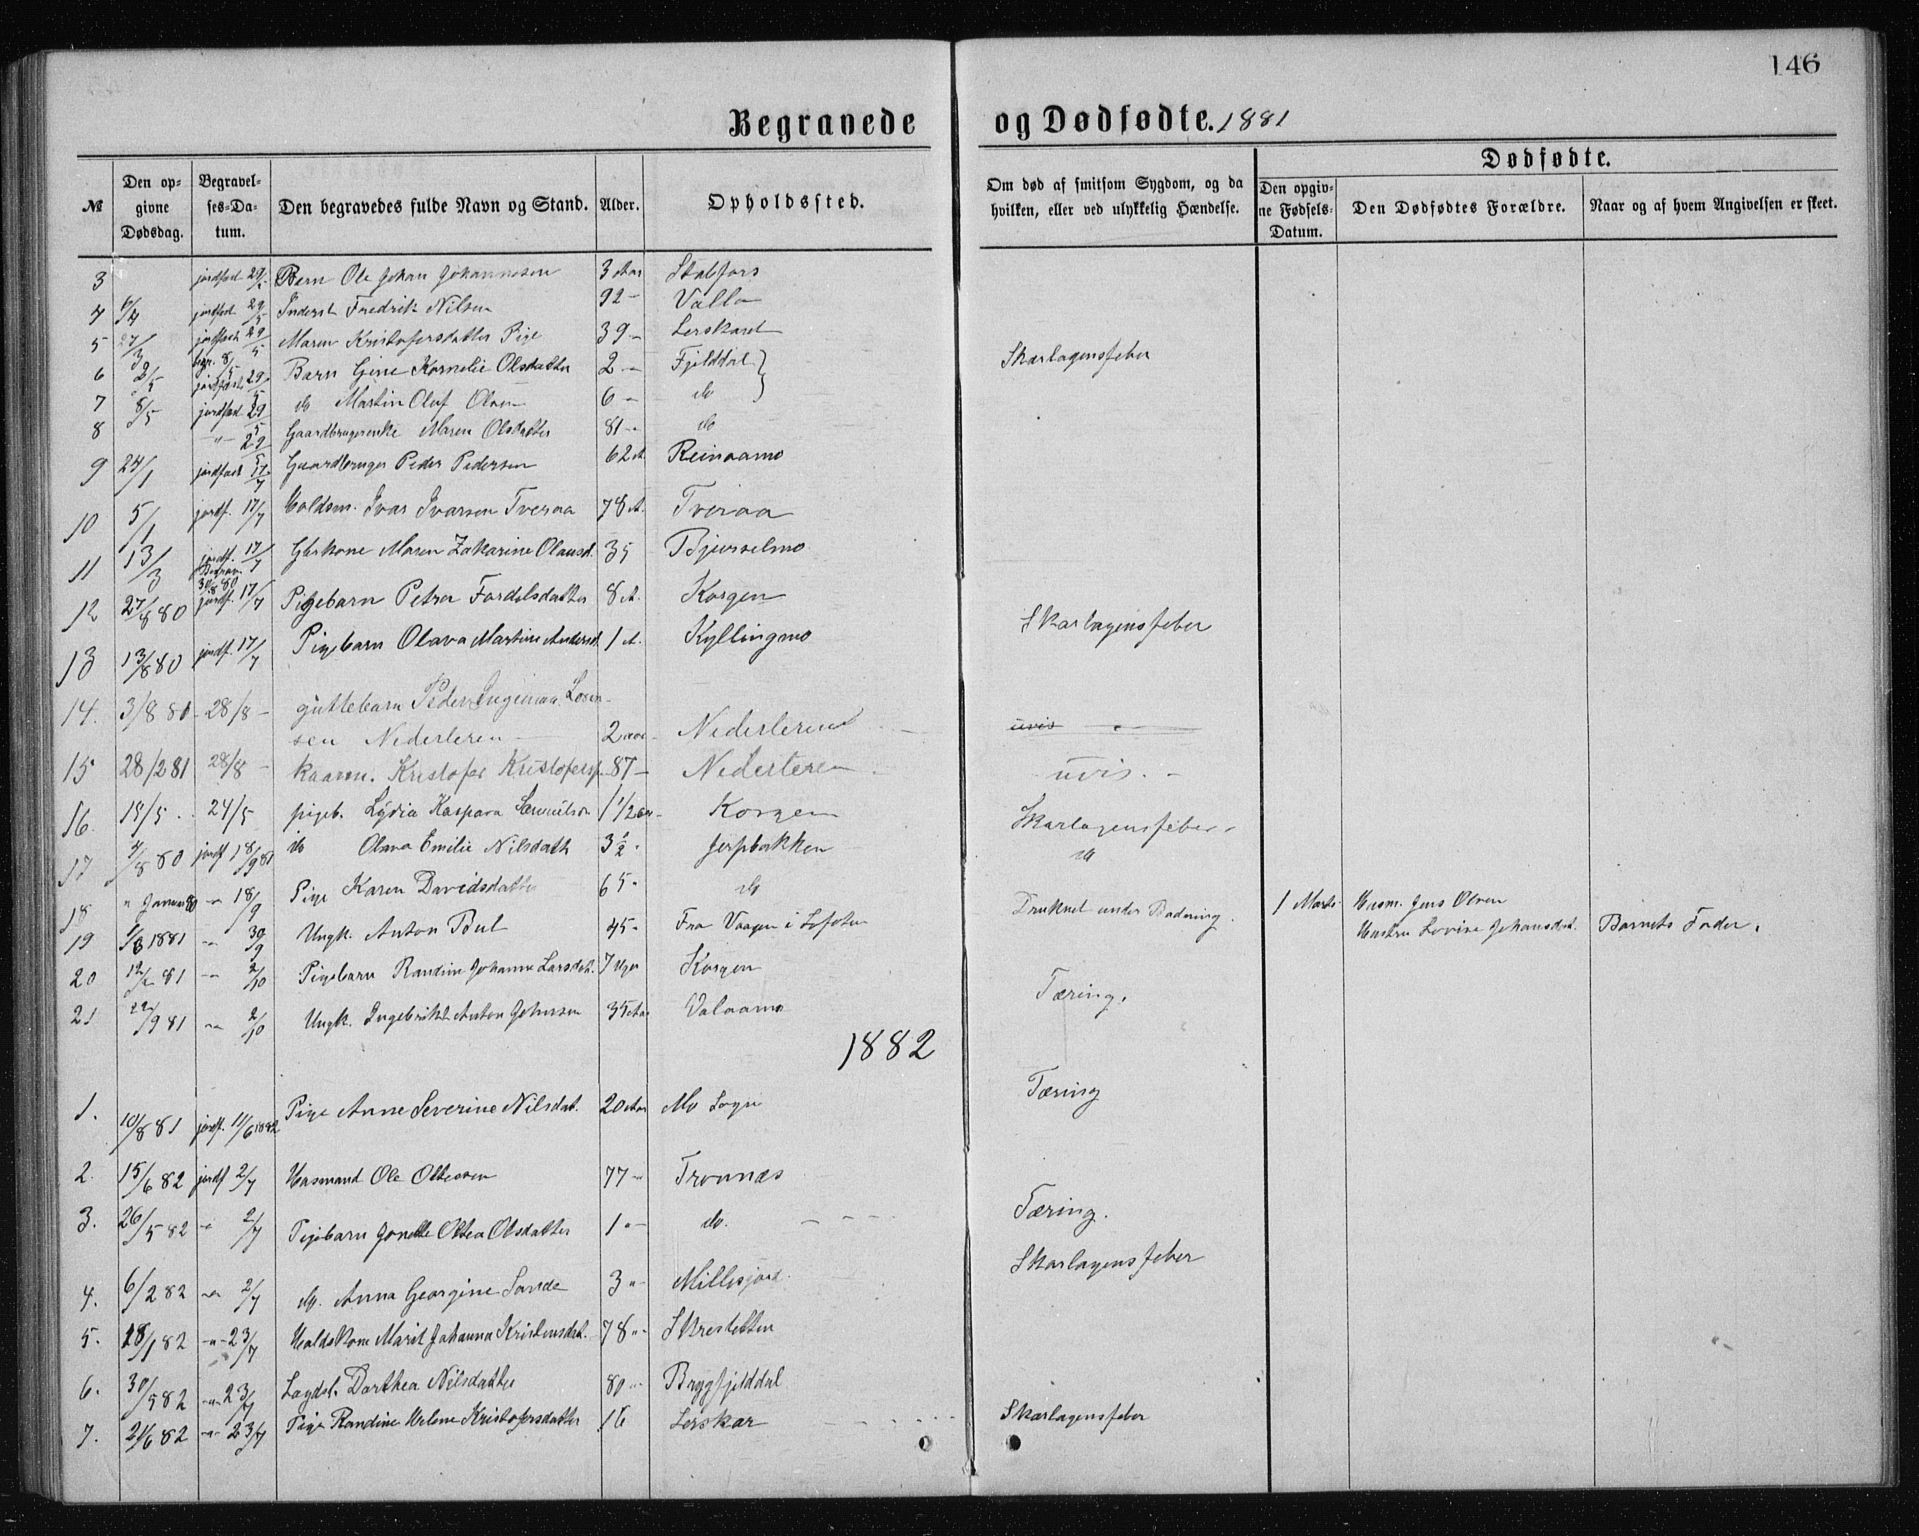 146
Begravede og Dødfødte. 1881
Dødfødte.
№
Den opgivne Dødsdag.
Begravelses-Datum.
Den begravedes fulde Navn og Stand.
Alder.
Opholdssted.
Om død af smitsom Sygdom, og da hvilken, eller ved ulykkelig Hændelse.
Den opgivne Fødsels-Datum.
Den Dødfødtes Forældre.
Naar og af hvem Angivelsen er skeet.
3 jordfæst 29/5 Barn Ole Johan Johannesen 3 Aar Stabfors
4 6/4 jordfæst 29/5 Inderst Fredrik Nilsen 92 - Valla
5 27/3 jordfæst 29/5 Maren Kristofersdatter Pige 39 - Lerskard
6 2/5 begr. 8/5 jordfæst 29/5 Barn Gine Kornelie Olsdatter 2 - Fjelddal Skarlagensfeber
7 8/5 jordfæst 29/5 do Martin Oluf Olsen 6 - do
8 -"- 29/5 Gaardbrugerenke Maren Olsdatter 81 - do
9 24/1 jordfæst 17/7 Gaardbruger Peder Pedersen 62 A. Reinaamo
10 5/1 jordf. 17/7 Holdsm. Ivar Ivarsen Tveraa 78 A. Tveraa
11 13/3 jordf. 17/7 Maren Zakarine Olausd. 35 Bjurselmo
12 27/8 80 30/8 80 jordf. 17/7 Pigebarn Petra Fordelsdatter 8 A. Korgen
13 13/8 80 jordf. 17/7 Pigebarn Olava Martine Andersd. 1 A. Kyllingmo Skarlagensfeber
14. 3/8 81 - 28/8 - guttebarn Peder
sen Nederleren - 2 aar - Nederleren - uvis
15 28/2 81 28/8 - Kaarm. Kristofer Kristofersen 87 - Nederleren - uvis. -
16. 15/5 . 24/5 pigeb. Lydia Kaspara Samuelsen 1 1/2 aar - Korgen Skarlagensfeber
17 4/8 80 jordf 18/9 81 do Olava Emilie Nilsdatt 3 1/2 . Jerpbakken do
18 " Januar 80 -"- 18/9 Pige Karen Davidsdatter 65 . do
19 1/8 1881 -"- 30/9 Ungk. Anton Bul 45 . Fra Vaagen i Lofoten Druknet under Badning. 1 Marts Husm. Jens Olsen
Hustru Lovise Johansdat. Barnets Fader.
20 12/2 81 -"- 2/10 Pigebarn Randine Johanna Larsdat. 7 Uger Korgen
21 22/9 81 -"- 2/10 Ungk. Ingebrikt Anton Johnsen 35 Aar Valaamo Tæring.
1882
1. 10/8 81 jordf. 11/6 1882 Pige Anne Severine Nilsdat. 20 Aar Mo Sogn Tæring
2. 15/6 82 jordf 2/7 Husmand Ole Ottesen 77 - Tronnæs
3. 26/5 82 -"- 2/7 Pigebarn Jonette Ottea Olsdatter 1 - do. Tæring.
4. 6/2 82 -"- 2/7 do. Anna Georgine Sande 3 - Millesjord. Skarlagensfeber
5. 18/1 82 -"- 23/7 Holdskone Marit Johanna Kristensdat. 78 - Skresletten
6. 30/5 82 -"- 23/7 Lægdsl. Dorthea Nilsdatter 80 - Bryggfjelddal
7. 21/6 82 -"- 23/7 Pige Randine Helene Kristofersdatter 16 Lerskar Skarlagensfeber